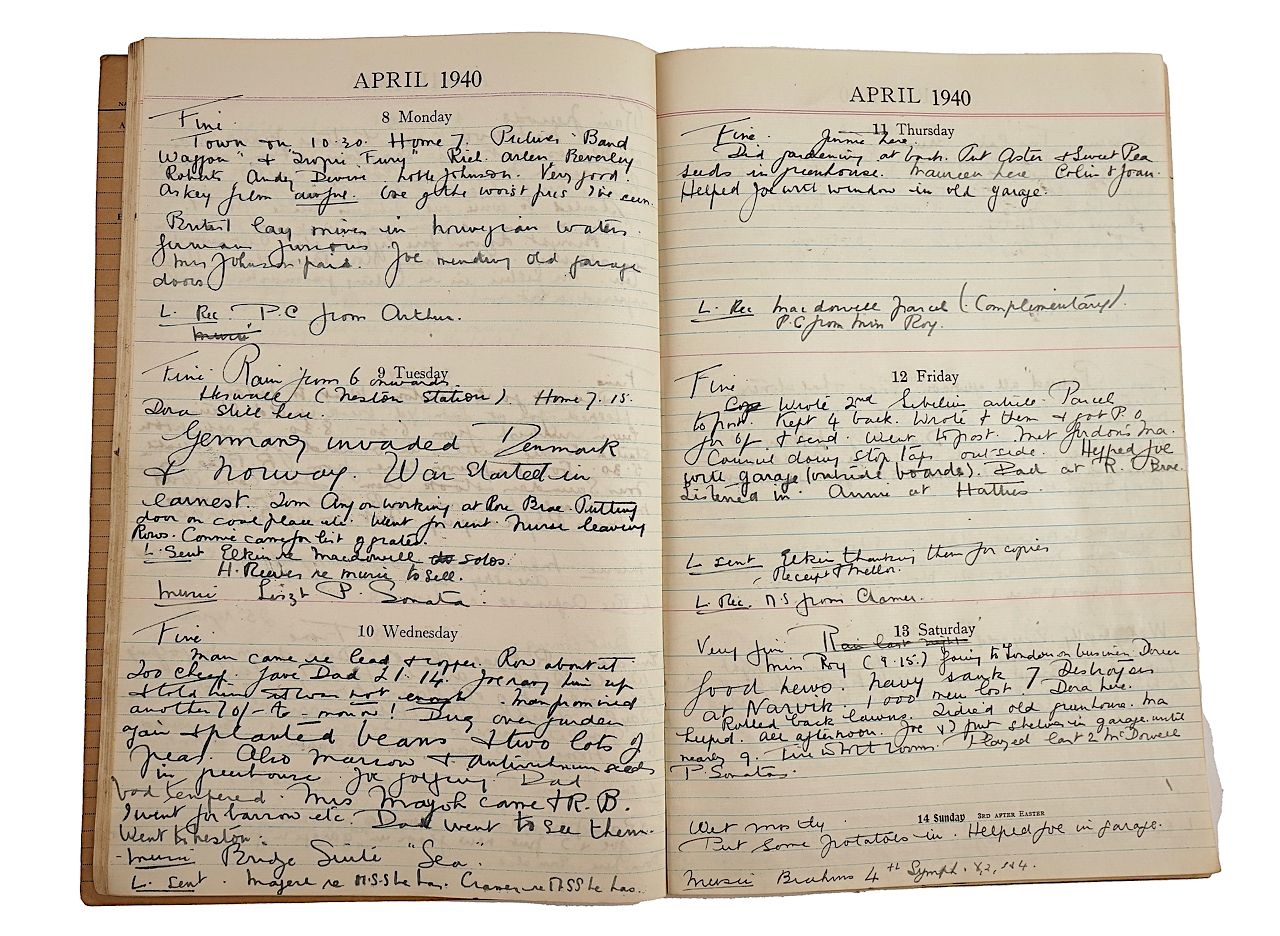 APRIL 1940
8 Monday
Fine.
Town on 10.30. Home 7. Pictures "Band
Waggon" & "Tropic Fury" Rich. Arlen, Beverley
Roberts Andy Devine Johnson. Very good
Askey film. One of the worst I've seen.
British lay mines in Norwegian waters.
German furious.
Mrs Johnson paid. Joe mending old garage
doors
L. Rec. P.C from Arthur.
Music
9 Tuesday
Fine. Rain from 6 onwards.
Heswall (Neston Station). Home 7.15.
Dora still here.
Germany invaded Denmark
& Norway. War started in
earnest. Tom working at Rose Brae. Putting
door on coal place etc. Went for rent. Nurse leaving
Rows. Connie came for list of grates.
L. Sent Elkin re Macdowell solos.
H. Reeves re music to sell.
Music Liszt P. Sonata.
10 Wednesday
Fine.
Man came re lead & copper. Row about it
too cheap. Gave Dad £1.14. Joe rang him up
& told him it was not enough. Man promised
another 70/- to-morrow! Dug over garden
again & planted beans & two lots of
peas. Also Marrow & Antirrhinum seeds
in greenhouse. Joe golfing. Dad
bad tempered. Mrs came & R.B.
I went for barrow etc. Dad went to see them.
Went to Neston.
Music Bridge Suite "Sea".
L. Sent. re MSS he has. Cramer re MSS he has.
APRIL 1940
11 Thursday
Fine. Jimmie here.
Did gardening at back. Put Aster & Sweet Pea
seeds in greenhouse. Maureen here. Colin & Joan.
Helped Joe with window in old garage.
L. Rec Macdowell Parcel (Complimentary).
P.C from Miss Roy.
12 Friday
Fine
Wrote 2nd Sibelius article. Parcel
to post. Kept 4 back. Wrote & them & got P.O
for 6/- & send. Went to post. Met Gordon's Ma.
Council doing stop tap outside. Helped Joe
with garage (outside boards). Dad at R. Brae.
Listened in. Annie at Hatties
L. sent Elkin thanking them for copies
Receipt & Mellor.
L. Rec. MS from Cramer.
13 Saturday
Very fine Rain last night
Miss Roy (9.15.) going to London on business
Good news. Navy sank 7 Destroyers
at Narvik. 1000 men lost. Dora here.
Rolled back lawns. Tidied old greenhouse. Ma
helped. All afternoon. Joe & I put shelves in garage until
nearly 9. Played last 2 McDowell
P. Sonatas.
14 Sunday 3RD AFTER EASTER
Wet mostly
Put some potatoes in. Helped Joe in garage.
Music Brahms 4th Symph.